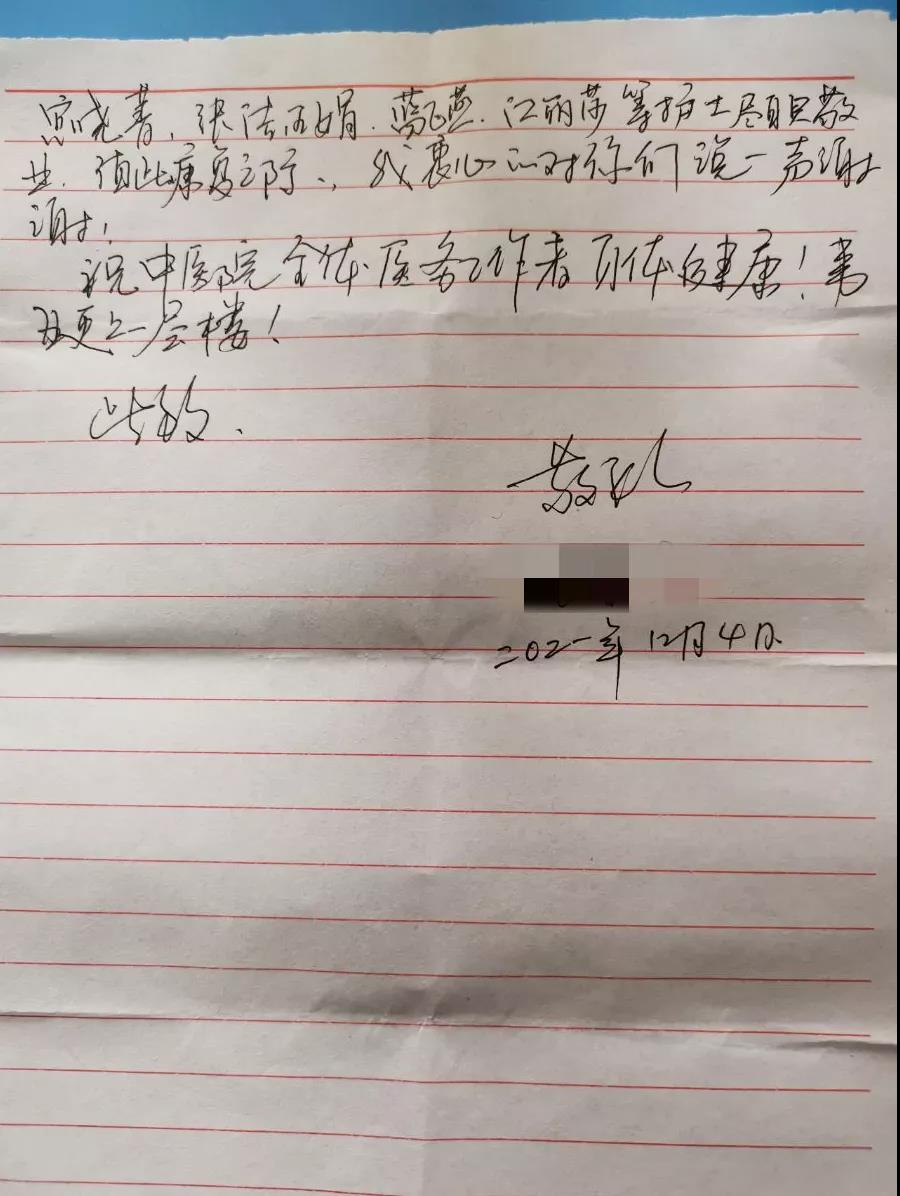 晓菁、张洁娟、蓝飞燕、江丽莎等护士尽职敬
业、值此康复之际、我衷心的对你们说一声谢
谢!
祝中医院全体医务工作者身体健康!事
业更上一层楼!
此致、
敬礼
二〇二一年12月4日